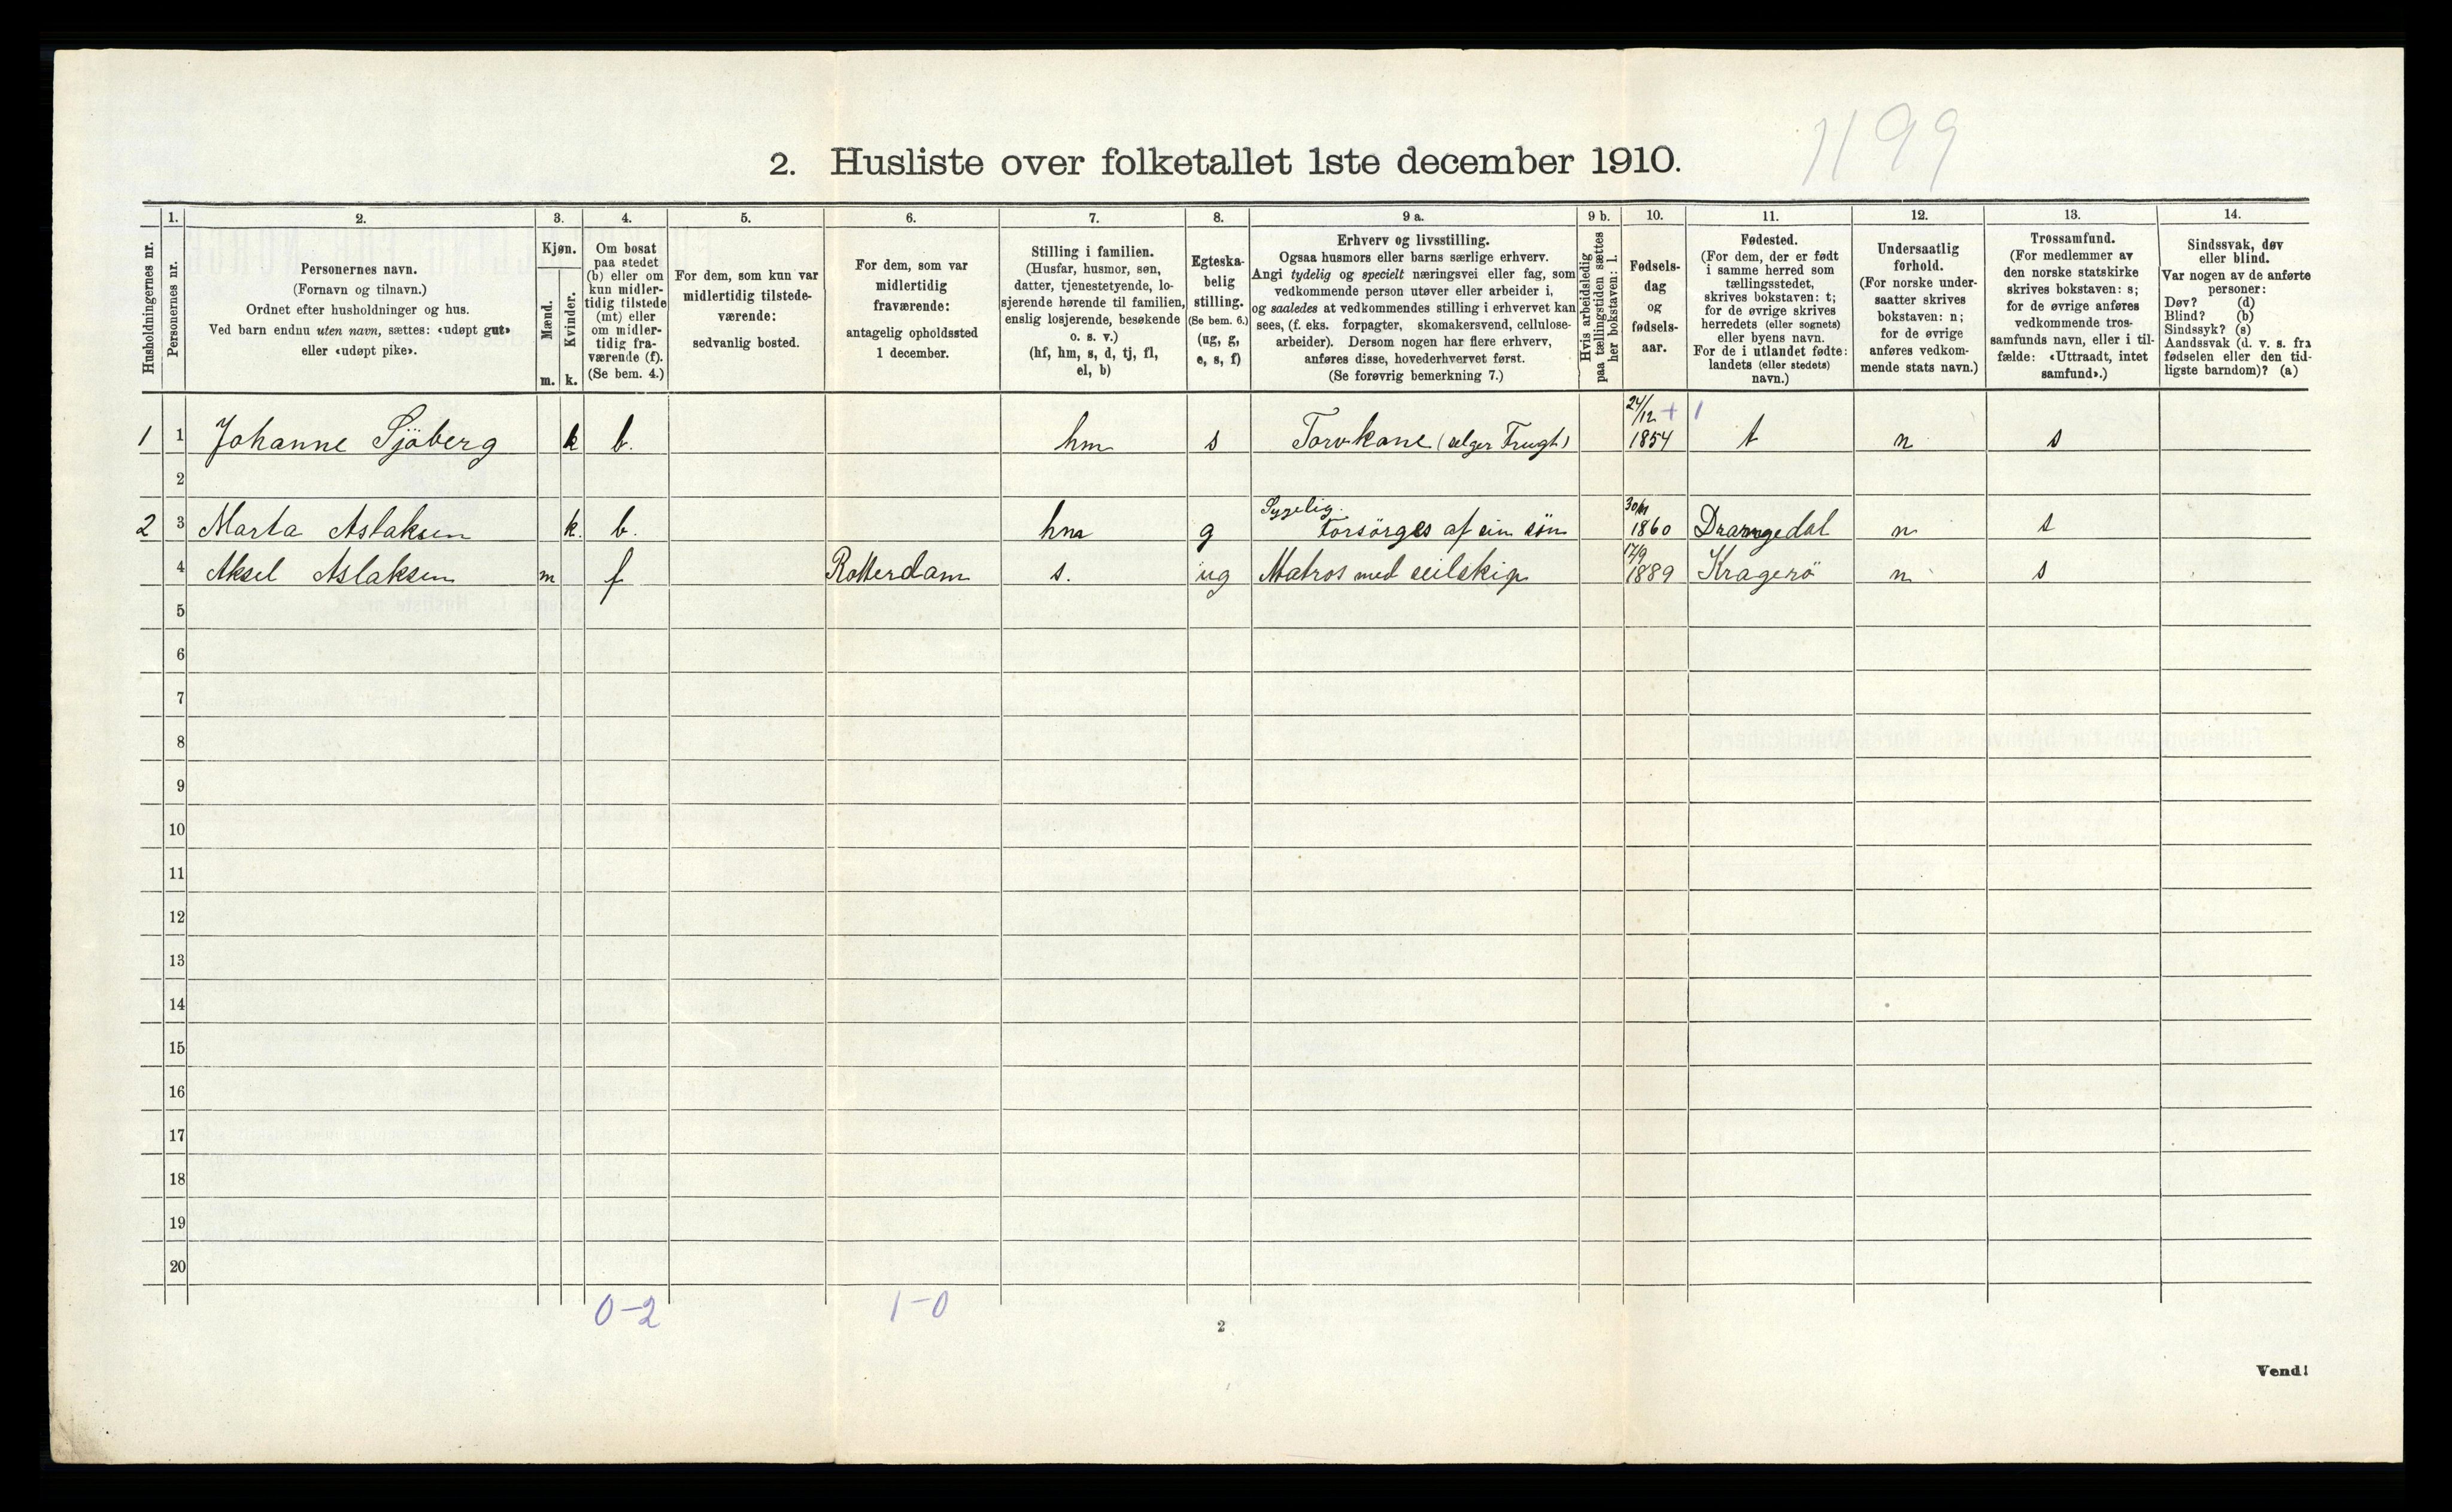 1199
2. Husliste over folketallet 1ste december 1910.
Husholdningernes nr.
1.
Personernes nr.
2.
Personernes navn.
(Fornavn og tilnavn.)
Ordnet efter husholdninger og hus.
Ved barn endnu uten navn, sættes: «udøpt gut»
eller «udøpt pike».
3.
Kjøn.
Mænd.
m.
Kvinder.
k.
4.
Om bosat
paa stedet
(b) eller om
kun midler-
tidig tilstede
(mt) eller
om midler-
tidig fra-
værende (f).
(Se bem. 4.)
5.
For dem, som kun var
midlertidig tilstede-
værende:
sedvanlig bosted.
6.
For dem, som var
midlertidig
fraværende:
antagelig opholdssted
1 december.
7.
Stilling i familien.
(Husfar, husmor, søn,
datter, tjenestetyende, lo-
sjerende hørende til familien,
enslig losjerende, besøkende
o. s. v.)
(hf, hm, s, d, tj, fl,
el, b)
8.
Egteska-
belig
stilling.
(Se bem. 6.)
(ug, g,
e, s, f)
9 a.
Erhverv og livsstilling.
Ogsaa husmors eller barns særlige erhverv.
Angi tydelig og specielt næringsvei eller fag, som
vedkommende person utøver eller arbeider i,
og saaledes at vedkommendes stilling i erhvervet kan
sees, (f. eks. forpagter, skomakersvend, cellulose-
arbeider). Dersom nogen har flere erhverv,
anføres disse, hovederhvervet først.
(Se forøvrig bemerkning 7.)
9 b.
Hvis arbeidsledig
paa tællingstiden sættes
her bokstaven: l.
10.
Fødsels-
dag
og
fødsels-
aar.
11.
Fødested.
(For dem, der er født
i samme herred som
tællingsstedet,
skrives bokstaven: t;
for de øvrige skrives
herredets (eller sognets)
eller byens navn.
For de i utlandet fødte:
landets (eller stedets)
navn.)
12.
Undersaatlig
forhold.
(For norske under-
saatter skrives
bokstaven: n;
for de øvrige
anføres vedkom-
mende stats navn.)
13.
Trossamfund.
(For medlemmer av
den norske statskirke
skrives bokstaven: s;
for de øvrige anføres
vedkommende tros-
samfunds navn, eller i til-
fælde: «Uttraadt, intet
samfund».)
14.
Sindssvak, døv
eller blind.
Var nogen av de anførte
personer:
Døv? (d)
Blind? (b)
Sindssyk? (s)
Aandssvak (d. v. s. fra
fødselen eller den tid-
ligste barndom)? (a)
1 1 Johanne Sjöberg k b. hm s Torvkone (selger Frugt) 24/12 + 1854 1 t n s
2
2 3 Marta Aslaksen k. b. hm g Sygelig. Forsörges af ein sön 1860 Drangedal n s
4 Aksel Aslaksen m f Rotterdam s. ug Matros med seilskip 17/9 1889 Kragerö n s
5
6
7
8
9
10
11
12
13
14
15
16
17
18
19
20
0-2 1-0
2
Vend!